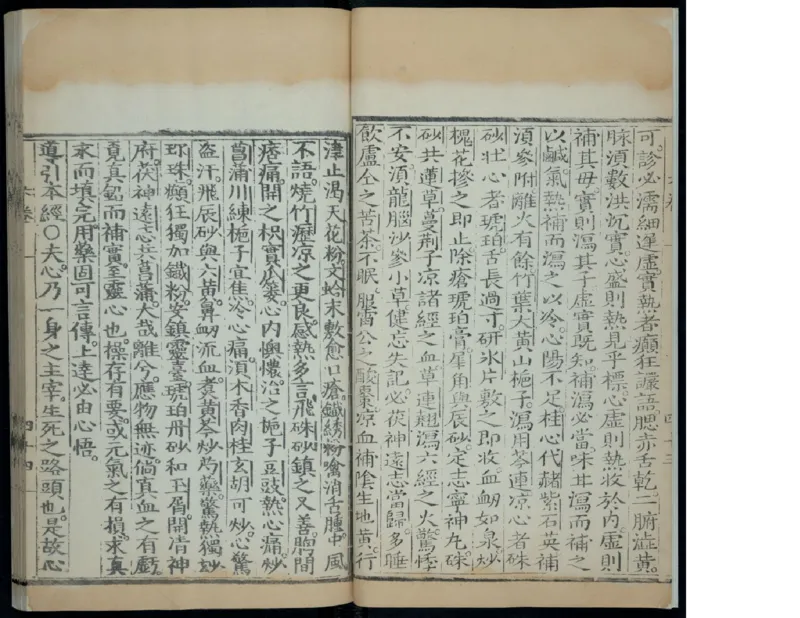 可診必濡細遲虛實熱者癲狂讝語腮赤舌乾二腑澁黃
脉須數洪沉實心盛則熱見乎標心虛則熱收於内虛則
補其母實則瀉其子虛實既知補瀉必當味甘瀉而補之
以鹹氣熱補而瀉之以冷心陽不足桂心代赭紫石英補
須參附離火有餘竹葉大黃山梔子瀉用芩連凉心者硃
砂壯心者琥珀舌長過寸研氷片敷之即收血衂如泉炒
槐花摻之即止除瘡琥珀膏犀角與辰砂定志寧神丸硃
砂共蓮草蔓荆子凉諸經之血草連翹瀉六經之火驚悸
不安須龍腦沙參小草健忘失記必茯神遠志當歸多睡
飲盧仝之苦茶不眠服雷公之酸棗凉血補陰生地黃行
津止渴天花粉文蛤末敷愈口瘡鐵綉粉噙消舌腫中風
不語燒竹瀝凉之更良感熱多言飛硃砂鎮之又善胸間
瘡痛開之枳實瓜蔞心内懊憹治之梔子豆豉熱心痛炒
菖蒲川練梔子宜焦冷心痛須木香肉桂玄胡可炒心驚
盗汗飛辰砂與六黃鼻衂流血煮黃芩炒芍藥驚熱獨妙
珎珠癲狂獨加鐵粉安鎮靈臺琥珀丹砂和玉屑開清神
府茯神遠志共菖蒲大哉離兮應物無迹倘真血之有虧
覓真鉛而補實至靈心也操存有要或元氣之有損求真
汞而填完用藥固可言傳上達必由心悟
導引本經○夫心乃一身之主宰生死之路頭也是故心
六卷
四十四
四十三